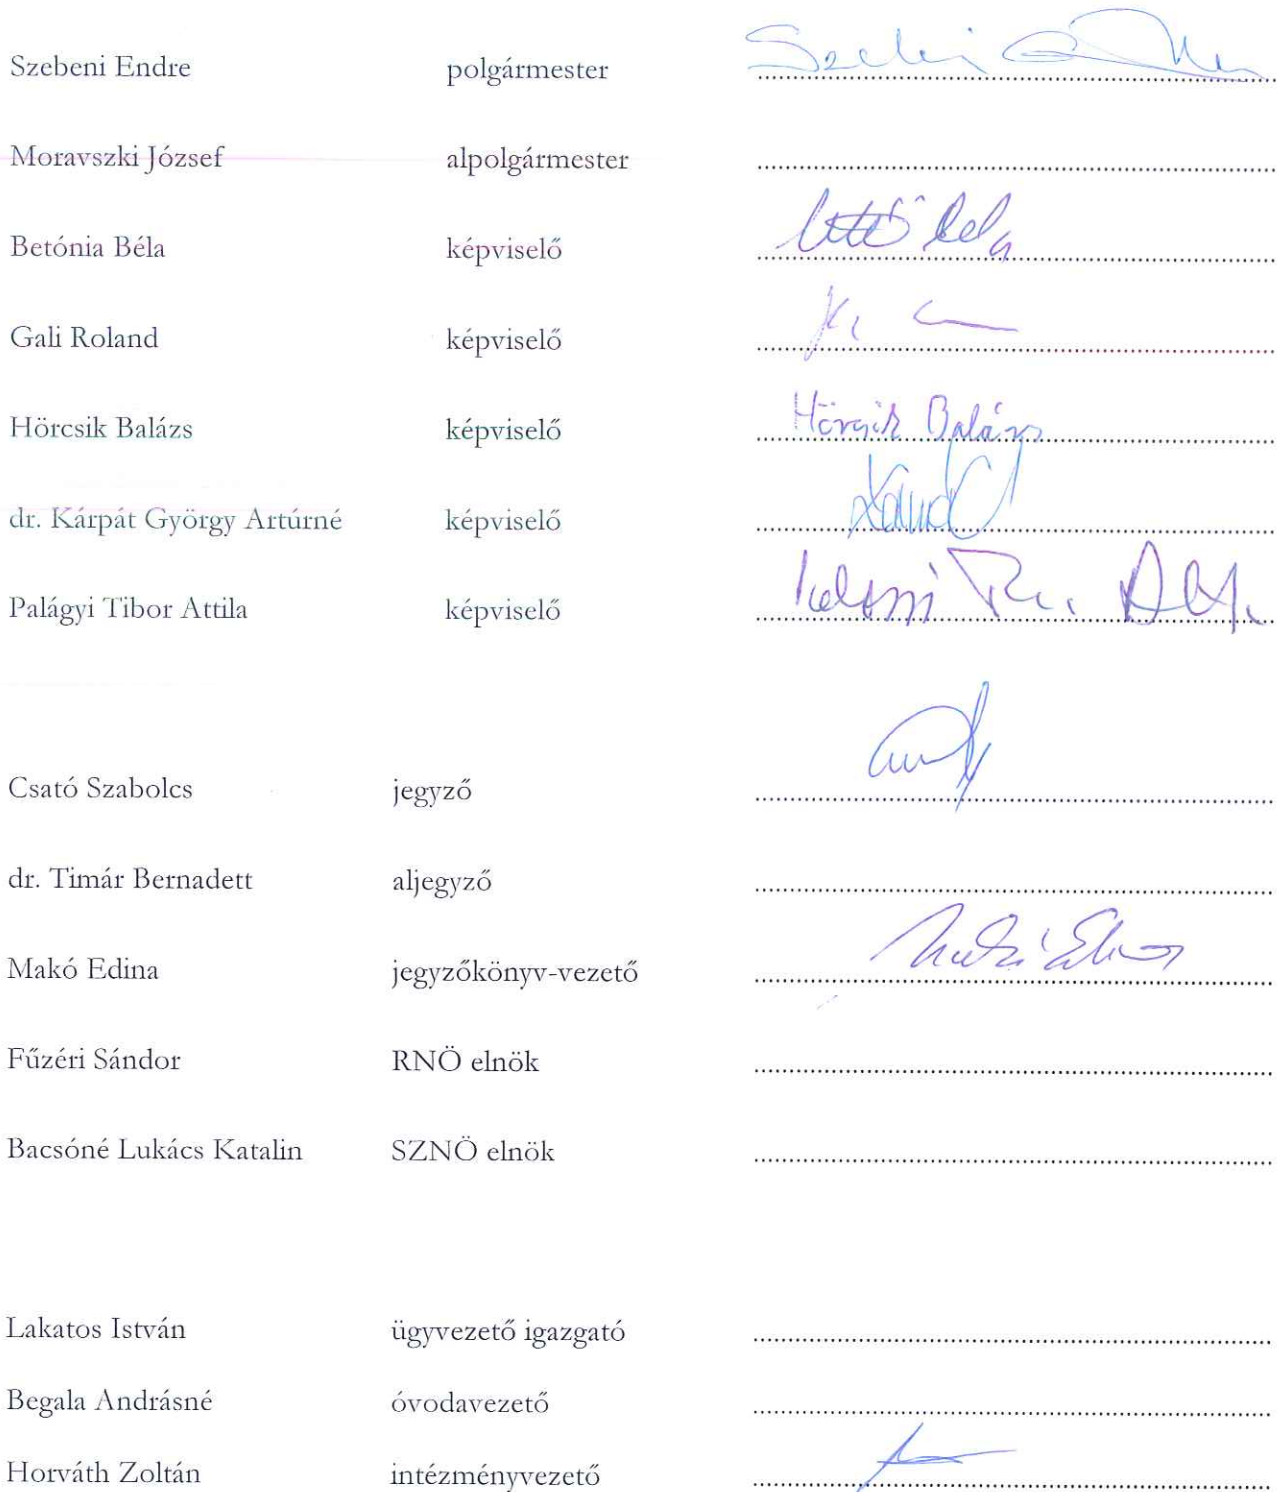 Szebeni Endre polgármester
Moravszki József alpolgármester
Betónia Béla képviselő
Gali Roland képviselő
Hörcsik Balázs képviselő Hörcsik Balázs
dr. Kárpát György Artúrné képviselő
Palágyi Tibor Attila képviselő
Csató Szabolcs jegyző
dr. Timár Bernadett aljegyző
Makó Edina jegyzőkönyv-vezető
Fűzéri Sándor RNÖ elnök
Bacsóné Lukács Katalin SZNÖ elnök
Lakatos István ügyvezető igazgató
Begala Andrásné óvodavezető
Horváth Zoltán intézményvezető